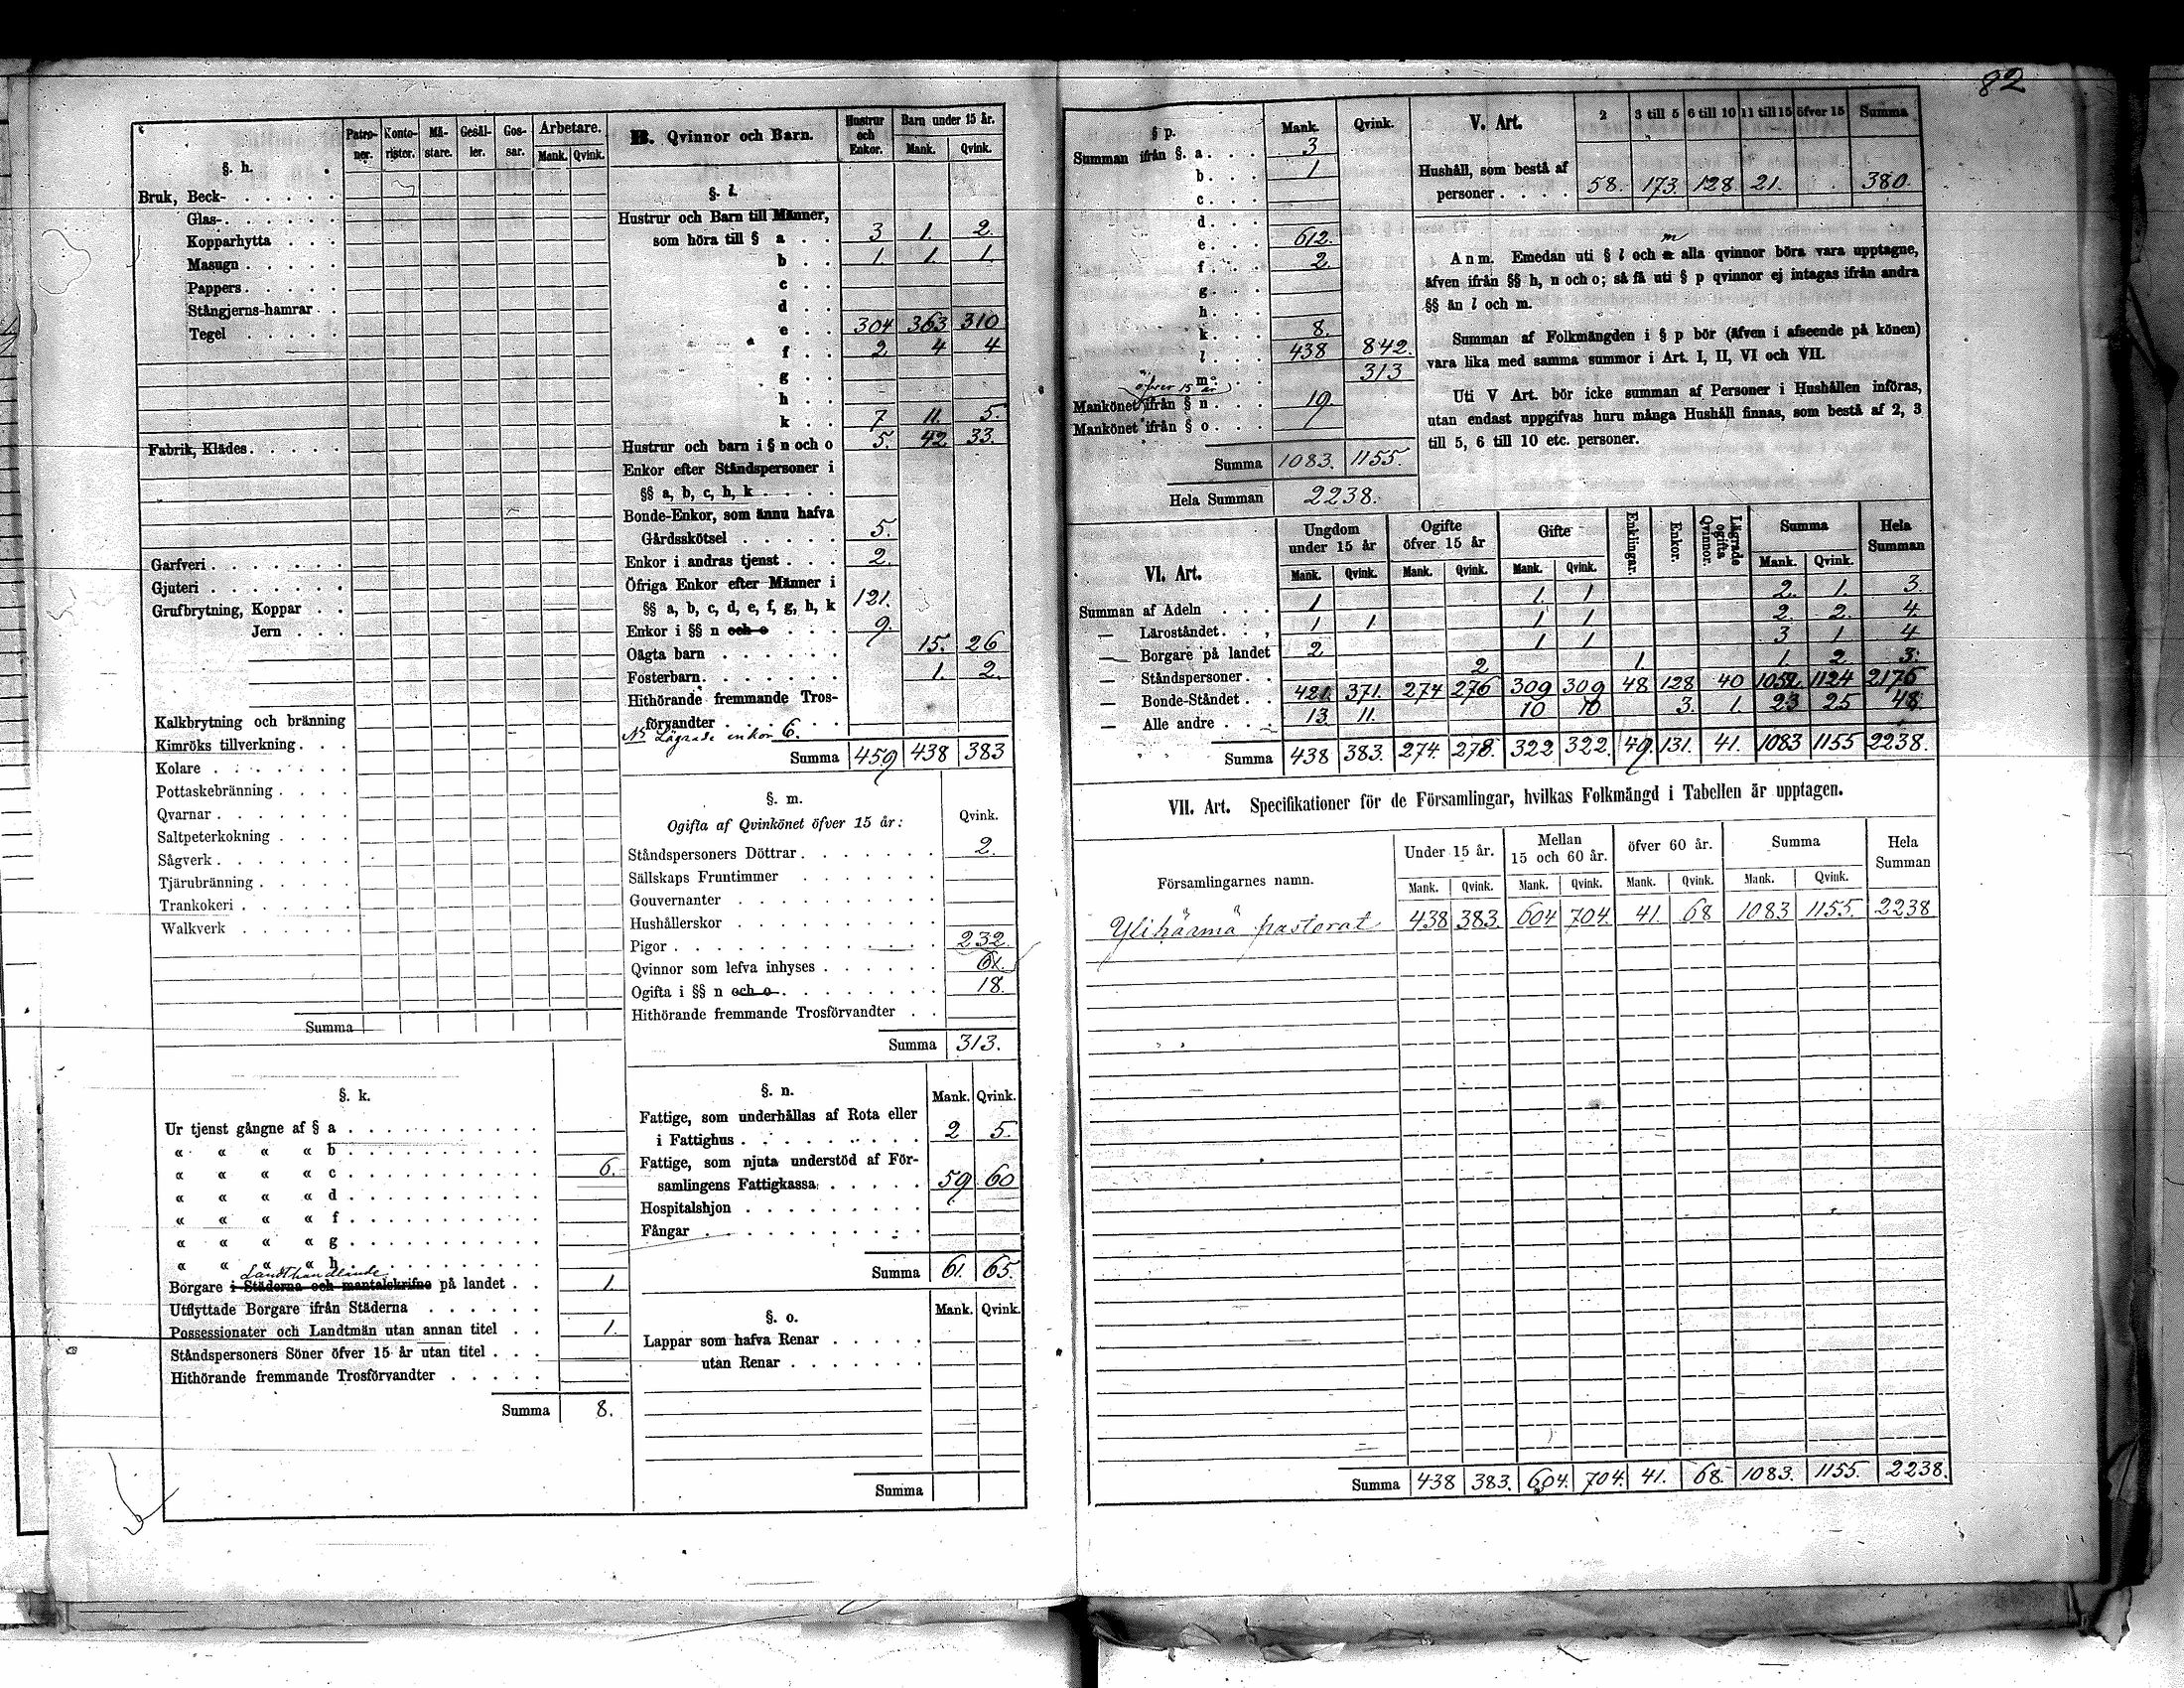 82
§. h. Patro-ner. Konto-rister. Mä-stare. Gesäl-ler. Gos-sar. Arbetare. Mank. Qvink.
Bruk, Beck-
Glas-
Kopparhytta
Masugn
Pappers
Stångjerns-hamrar
Tegel
Fabrik, Klädes
Garfveri
Gjuteri
Grufbrytning, Koppar
Jern
Kalkbrytning och bränning
Kimröks tillverkning
Kolare
Pottaskebränning
Qvarnar
Saltpeterkokning
Sågverk
Tjärubränning
Trankokeri
Walkverk
Summa
§. k.
Ur tjenst gångne af § a
« « « « b
« « « « c 6.
« « « « d
« « « « f
« « « « g
« « « « h
Landthandlande
Borgare i Städerna och mantalskrifne på landet 1.
Utflyttade Borgare ifrån Städerna
Possessionater och Landtmän utan annan titel 1.
Ståndspersoners Söner öfver 15 år utan titel
Hithörande fremmande Trosförvandter
Summa 8.
B. Qvinnor och Barn. Hustrur och Enkor. Barn under 15 år. Mank. Qvink.
§. l.
Hustrur och Barn till Männer,
som höra till § a 3 1. 2.
b 1. 1. 1.
c
d
e 304 363 310
f 2 4 4
g
h
k 7 11. 5.
Hustrur och barn i § n och o 5. 42. 33.
Enkor efter Ståndspersoner i
§§ a, b, c, h, k
Bonde-Enkor, som ännu hafva
Gårdsskötsel 5.
Enkor i andras tjenst 2.
Öfriga Enkor efter Männer i
§§ a, b, c, d, e, f, g, h, k 121.
Enkor i §§ n och o 9.
Oägta barn 15. 26
Fosterbarn 1. 2.
Hithörande fremmande Tros-
förvandter
Lägrade enkor 6.
Summa 459 438 383
§. m.
Ogifta af Qvinkönet öfver 15 år: Qvink.
Ståndspersoners Döttrar 2.
Sällskaps Fruntimmer
Gouvernanter
Hushållerskor
Pigor 232.
Qvinnor som lefva inhyses
Ogifta i §§ n och o 18.
Hithörande fremmande Trosförvandter
Summa 313.
§. n. Mank. Qvink.
Fattige, som underhållas af Rota eller
i Fattighus 2 5.
Fattige, som njuta understöd af För-
samlingens Fattigkassa 59 60
Hospitalshjon
Fångar
Summa 61. 65.
§. o. Mank. Qvink.
Lappar som hafva Renar
utan Renar
Summa
§ p. Mank. Qvink.
Summan ifrån §. a 3
b 1
c
d
e 612.
f 2.
g
h
k 8.
l 438 842.
m 313
öfver 15 år
Mankönet ifrån § n 19.
Mankönet ifrån § o
Summa 1083. 1155.
Hela Summan 2238.
V. Art. 2 3 till 5 6 till 10 11 till 15 öfver 15 Summa
Hushåll, som bestå af
personer 58. 173. 128. 21. 380.
m
Anm. Emedan uti § l och n alla qvinnor böra vara upptagne,
äfven ifrån §§ h, n och o; så få uti § p qvinnor ej intagas ifrån andra
§§ än l och m.
Summan af Folkmängden i § p bör (äfven i afseende på könen)
vara lika med samma summor i Art. I, II, VI och VII.
Uti V Art. bör icke summan af Personer i Hushållen införas,
utan endast uppgifvas huru många Hushåll finnas, som bestå af 2, 3
till 5, 6 till 10 etc. personer.
VI. Art. Ungdom under 15 år Ogifte öfver 15 år Gifte Enklingar. Enkor. Lägrade ogifta Qvinnor. Summa Hela Summan
Mank. Qvink. Mank. Qvink. Mank. Qvink. Mank. Qvink.
Summan af Adeln 1 1. 1 2. 1. 3.
— Läroståndet 1 1 1 1 2. 2. 4.
— Borgare på landet 2 1 1 3 1 4
— Ståndspersoner 2 1. 1. 2. 3.
— Bonde-Ståndet 421. 371. 274 276 309 309 48 128 40 1052. 1124 2176
— Alle andre 13. 11. 10 10 3. 1. 23 25 48.
Summa 438 383. 274. 278. 322 322. 49. 131. 41. 1083 1155 2238.
VII. Art. Specifikationer för de Församlingar, hvilkas Folkmängd i Tabellen är upptagen.
Församlingarnes namn. Under 15 år. Mellan 15 och 60 år. öfver 60 år. Summa Hela Summan
Mank. Qvink. Mank. Qvink. Mank. Qvink. Mank. Qvink.
Ylihärmä pastorat 438 383. 604 704. 41. 68 1083 1155. 2238
Summa 438 383. 604. 704. 41. 68. 1083. 1155. 2238.